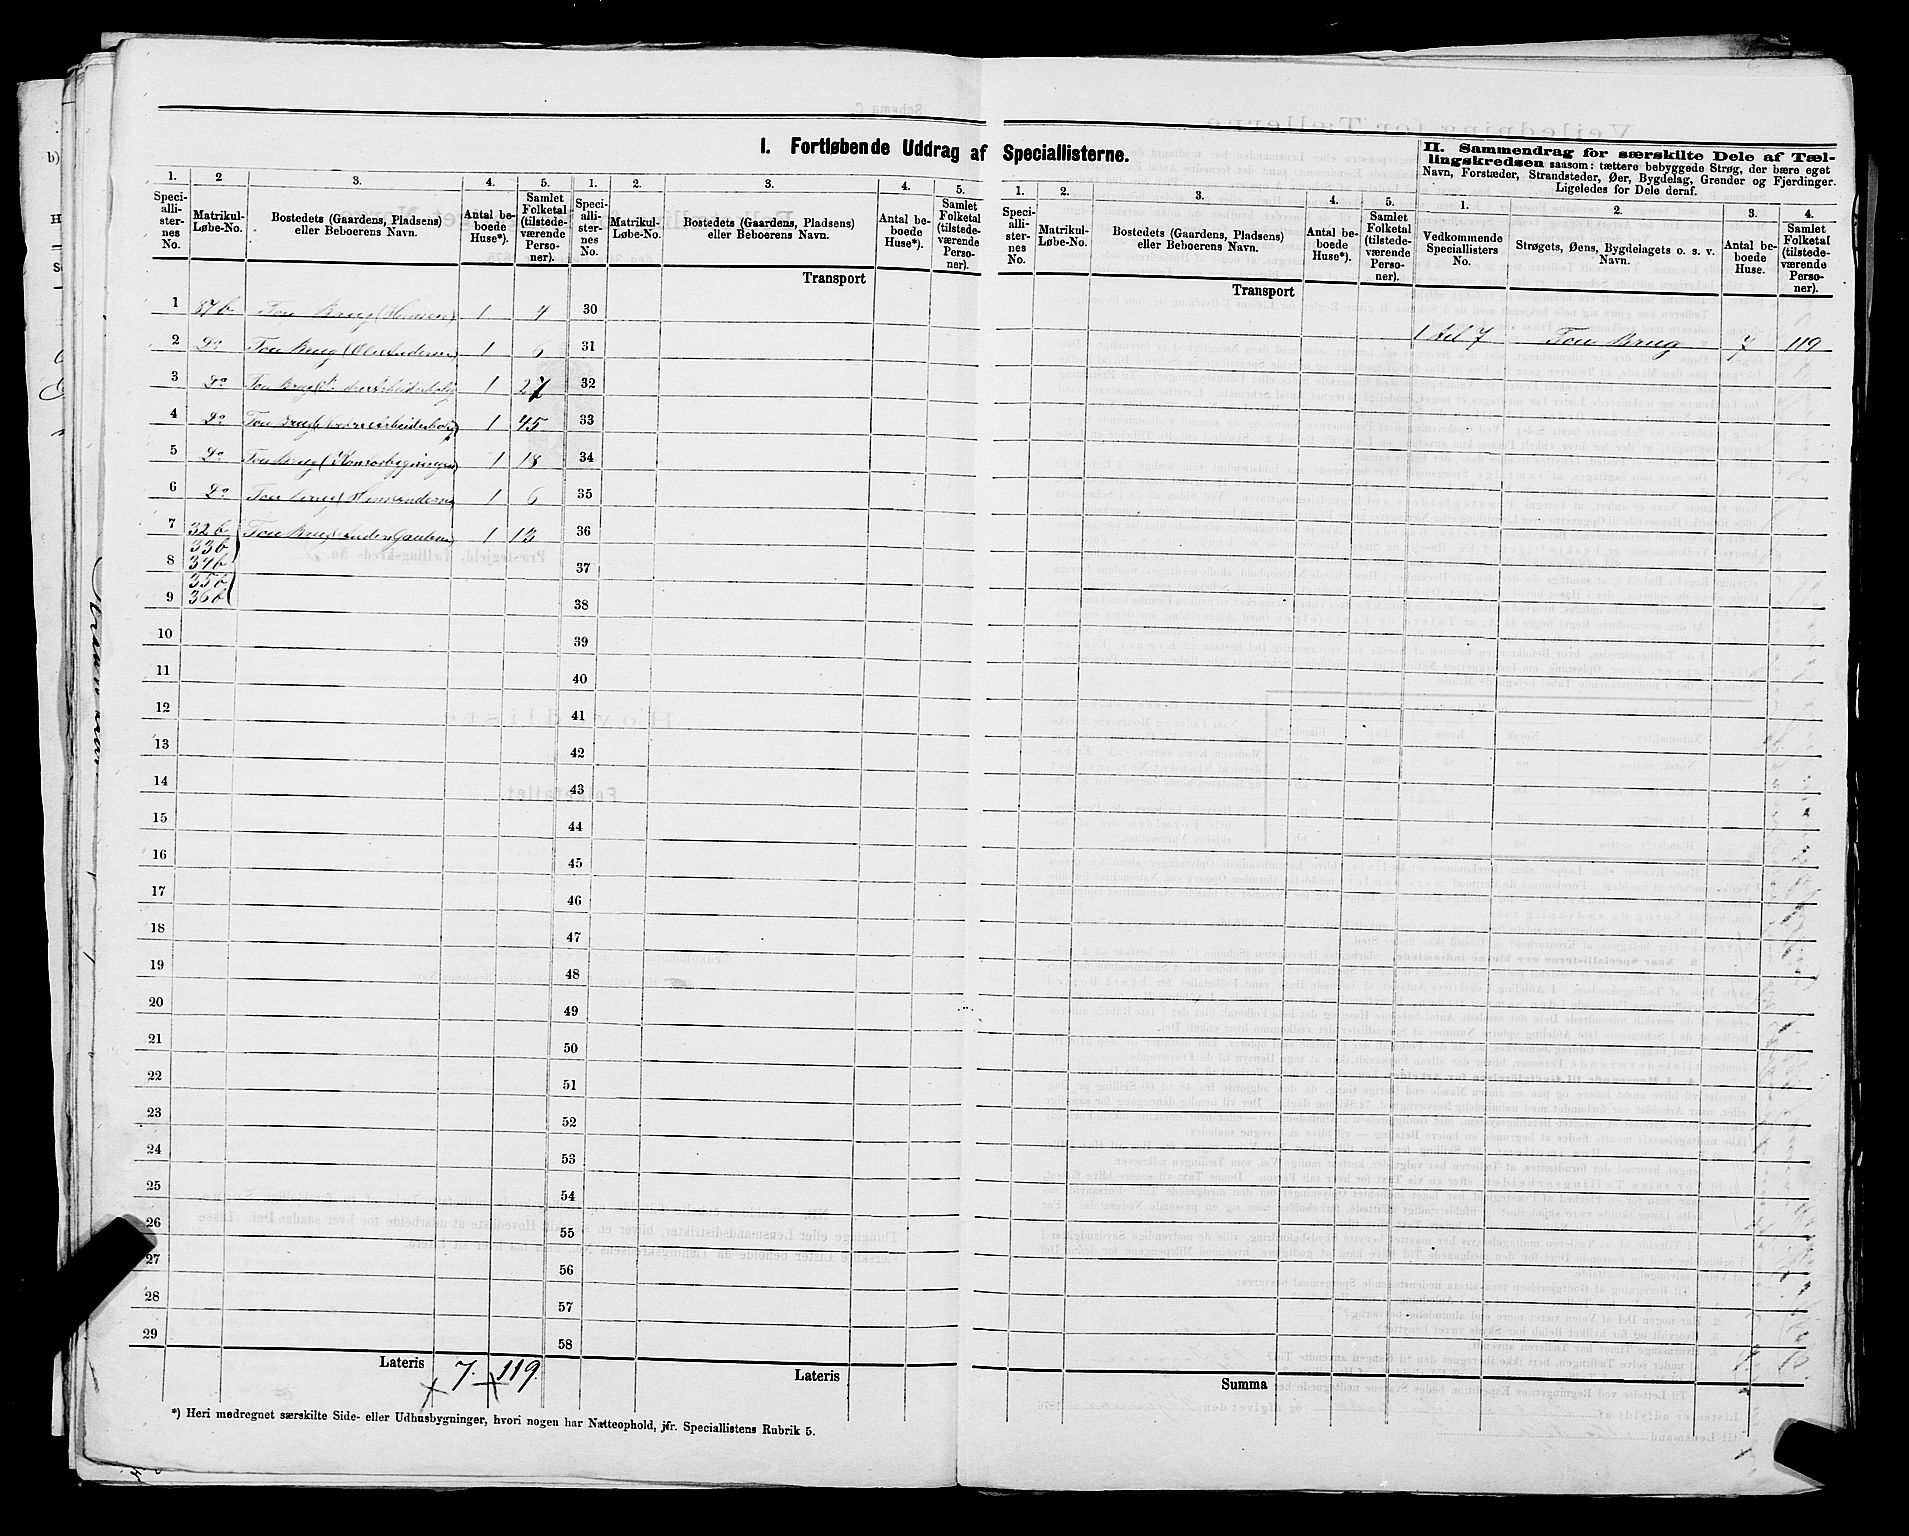 I. Fortløbende Uddrag af Speciallisterne.
II. Sammendrag for særskilte Dele af Tællingskredsen saasom: tættere bebyggede Strøg, der bære eget Navn, Forstæder, Strandsteder, Øer, Bygdelag, Grender og Fjerdinger. Ligeledes for Dele deraf.
1. 2 3. 4. 5. 1. 2. 3. 4. 5. 1. 2. 3. 4. 5. 1. 2. 3. 4.
Speciallisternes No. Matrikul-Løbe-No. Bostedets (Gaardens, Pladsens) eller Beboerens Navn. Antal beboede Huse*). Samlet Folketal (tilstedeværende Personer).
Speciallisternes No. Matrikul-Løbe-No. Bostedets (Gaardens, Pladsens) eller Beboerens Navn. Antal beboede Huse*). Samlet Folketal (tilstedeværende Personer).
Speciallisternes No. Matrikul-Løbe-No. Bostedets (Gaardens, Pladsens) eller Beboerens Navn. Antal beboede Huse*). Samlet Folketal (tilstedeværende Personer).
Vedkommende Speciallisters No. Strøgets, Øens, Bygdelagets o. s. v. Navn. Antal beboede Huse. Samlet Folketal (tilstedeværende Personer).
Transport Transport
1 87b Fou Brug (Hansen) 1 4 30
1 til 7 Fou Brug 7 119
2 Do Fou Brug (Ole Andersen) 1 6 31
3 Do Fou Brug 1 27 32
4 Do Fou Brug 1 45 33
5 Do Fou Brug 1 18 34
6 Do Fou Brug 1 6 35
7 32b Fou Brug 1 13 36
33b
8 34b 37
35b
9 36b 38
10 39
11 40
12 41
13 42
14 43
15 44
16 45
17 46
18 47
19 48
20 49
21 50
22 51
23 52
24 53
25 54
26 55
27 56
28 57
29 58
Lateris 7. 119. Lateris Summa
*) Heri medregnet særskilte Side- eller Udhusbygninger, hvori nogen har Natteophold, jfr. Speciallistens Rubrik 5.